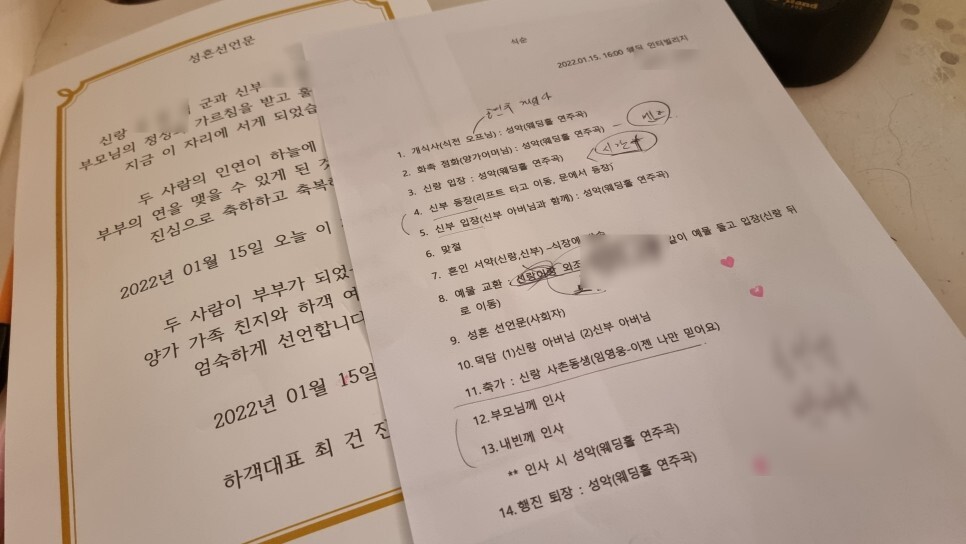 성혼선언문
신랑 군과 신부
부모님의 정성과 가르침을 받고
지금 이 자리에 서게 되었습
두 사람의 인연이 하늘에
부부의 연을 맺을 수 있게 된 것
진심으로 축하하고 축복하
2022년 01월 15일 오늘 이
두 사람이 부부가 되었
양가 가족 친지와 하객 여
엄숙하게 선언합니다
2022년 01월 15일
하객대표 최 건
식순
2022.01.15. 16:00
1. 개식사(식전 오프닝) : 성악(웨딩홀 연주곡)
2. 화촉 점화(양가어머님) : 성악(웨딩홀 연주곡)
3. 신랑 입장 : 성악(웨딩홀 연주곡)
4. 신부 등장(리프트 타고 이동, 문에서 등장)
5. 신부 입장(신부 아버님과 함께) : 성악(웨딩홀 연주곡)
6. 맞절
7. 혼인 서약(신랑,신부)
8. 예물 교환 : 같이 예물 들고 입장(신랑 뒤
로 이동)
9. 성혼 선언문(사회자)
10.덕담 (1)신랑 아버님 (2)신부 아버님
11.축가 : 신랑 사촌동생(임영웅-이젠 나만 믿어요)
12.부모님께 인사
13.내빈께 인사
** 인사 시 성악(웨딩홀 연주곡)
14.행진 퇴장 : 성악(웨딩홀 연주곡)